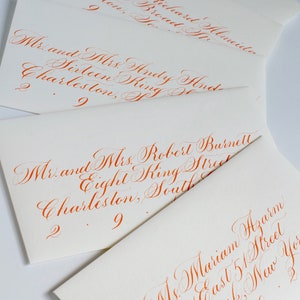 Richard Alm
Broad St
Mr. and Mrs. Andy And
Sixteen King St
Charleston, So
2 9
Mr. and Mrs. Robert Burnett
Eight King Street
Charleston, South
2 9
Mariam Azarm
East 51 Street
New York